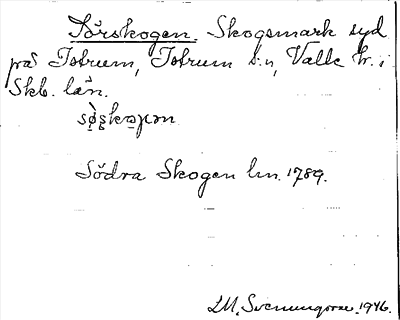 Sörskogen. Skogsmark syd
på Istrum, Istrum s:n, Valle hr. i
Skb. län.
Södra Skogen lm. 1789.
LM, Svenungsson. 1946.